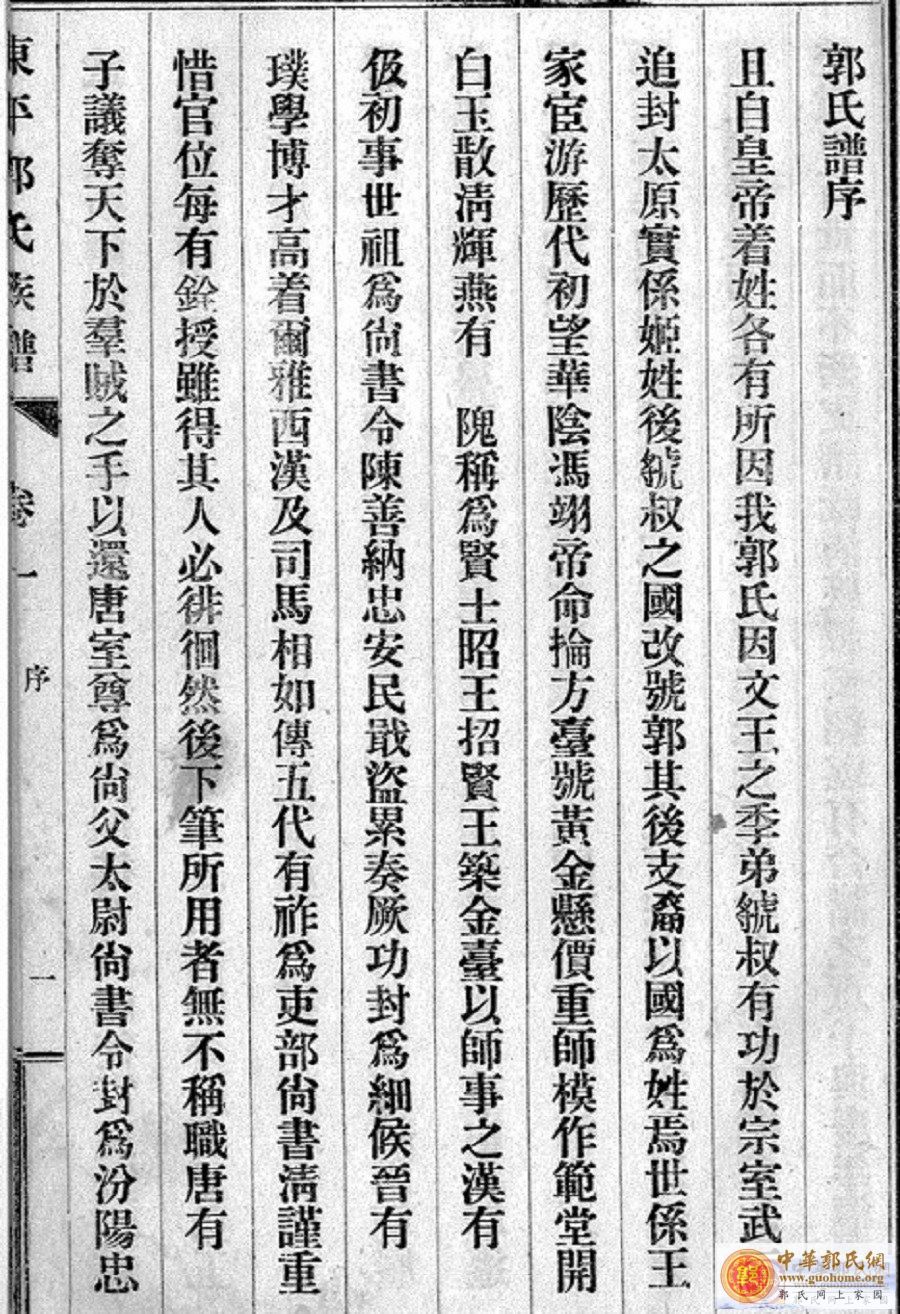 郭氏譜序
且自皇帝着姓各有所因我郭氏因文王之季弟虢叔有功於宗室武
追封太原實係姬姓後虢叔之國改號郭其後支裔以國為姓焉世係王
家宦游歷代初望華陰馮翊帝命掄方臺號黃金懸價重師模作範堂開
白玉散淸輝燕有 隗稱爲賢士昭王招賢王築金臺以師事之漢有
伋初事世祖爲尙書令陳善納忠安民戢盜累奏厥功封爲細侯晉有
璞學博才高着爾雅西漢及司馬相如傳五代有祚爲吏部尙書淸謹重
惜官位每有銓授雖得其人必徘徊然後下筆所用者無不稱職唐有
子議奪天下於羣賊之手以還唐室尊爲尙父太尉尙書令封爲汾陽忠
東平郭氏族譜
卷一
序
一
中華郭氏網
www.guohome.org
郭氏网上家园